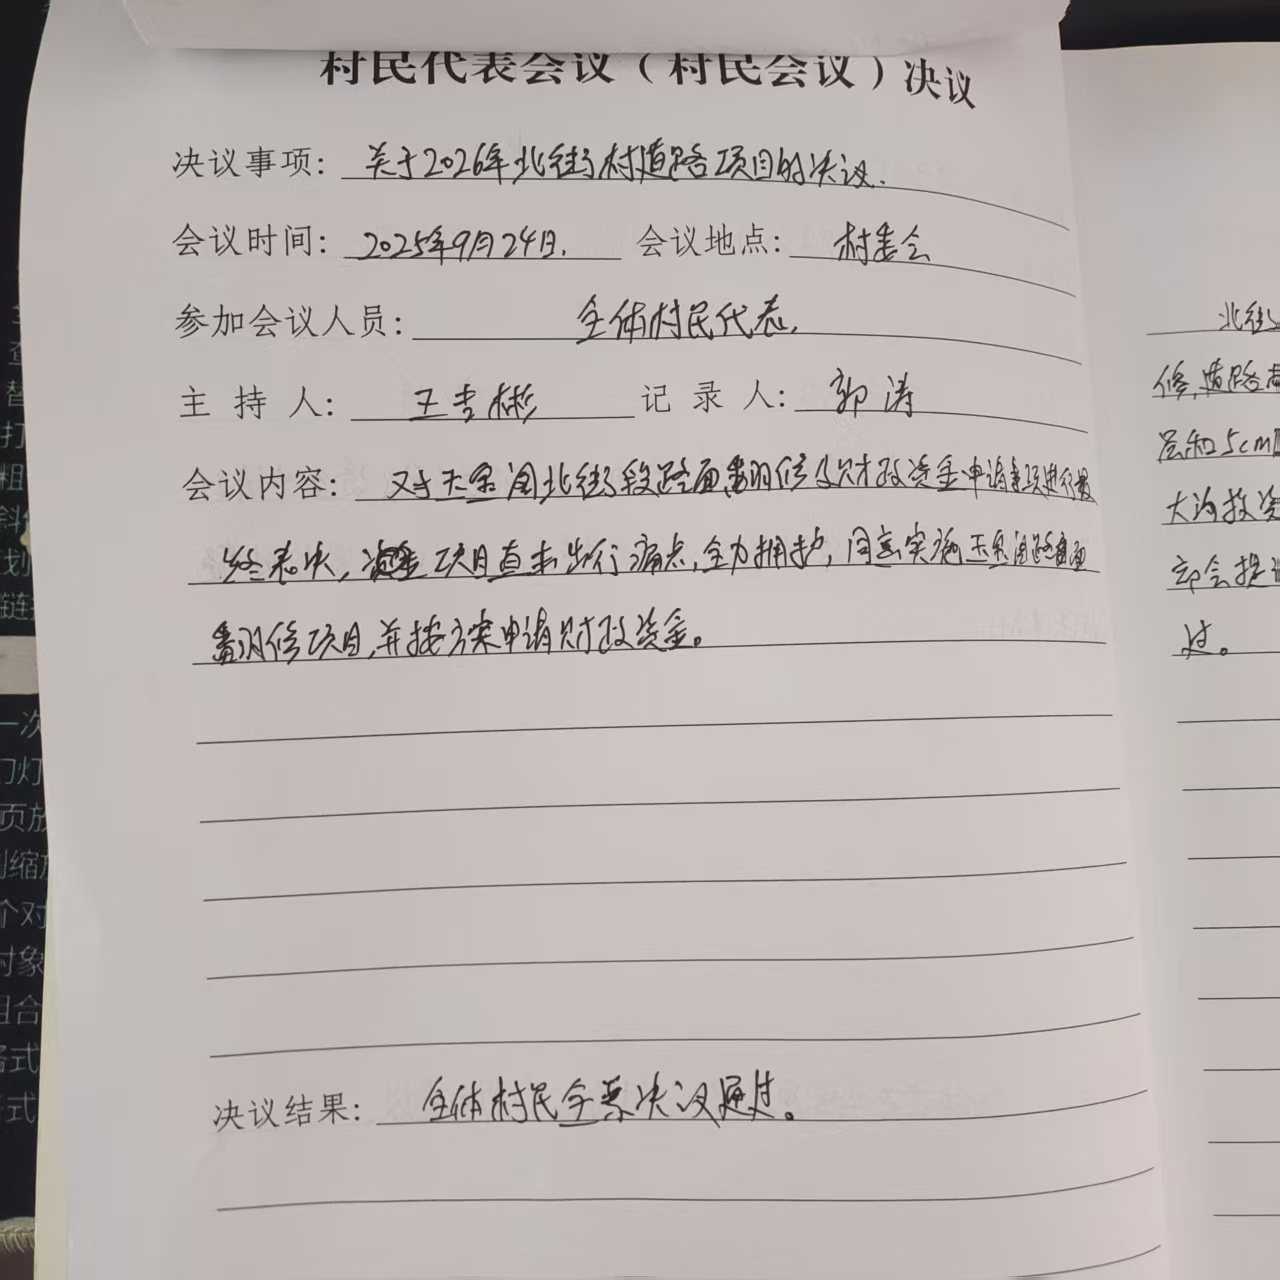 村民代表会议（村民会议）决议
决议事项：关于2026年北街村道路项目的决议.
会议时间：2025年9月24日. 会议地点：村委会
参加会议人员：全体村民代表.
主持人：王吉彬 记录人：郭涛
会议内容：对玉泉阁北街段路面翻修及财政资金申请事项进行最
终表决，项目直击出行痛点,全力拥护，同意实施玉泉阁路面
翻修项目,并按方案申请财政资金。
决议结果：全体村民全票决议通过。
北街
修,道路
层和5cm
大沟投资
部会提
过。
一次
幻灯
页放
缩放
个对
对象
组合
格式